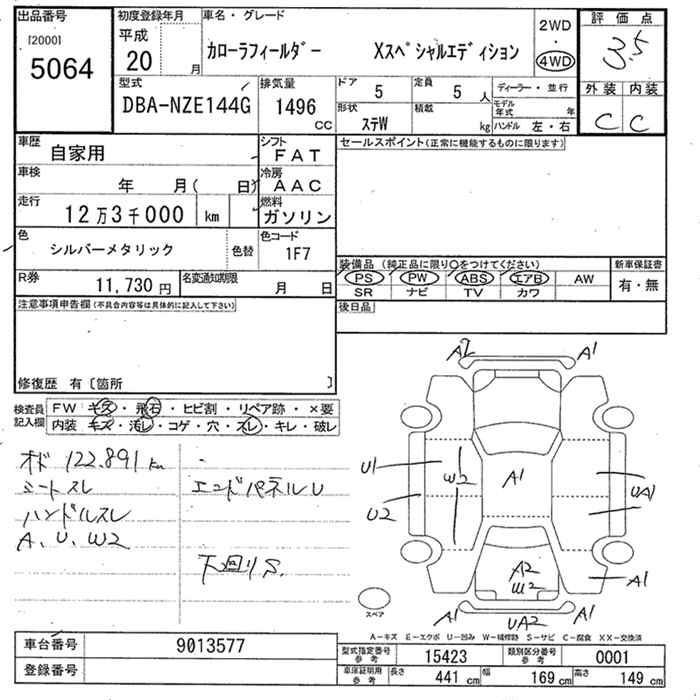 出品番号
[2000]
5064
初度登録年月
平成
20 月
車名・グレード
カローラフィールダー Xスペシャルエディション
2WD
・
4WD
評価点
3.5
外装 内装
C C
型式
DBA-NZE144G
排気量
1496
CC
ドア
5
定員
5 人
形状
ステW
積載
kg
ディーラー・並行
モデル年式 年
ハンドル 左・右
車歴
自家用
シフト
FAT
車検
年 月( 日)
冷房
AAC
走行
12万3千000 km
燃料
ガソリン
色
シルバーメタリック
色替
色コード
1F7
R券
11,730円
名変通知期限
月 日
セールスポイント(正常に機能するものに限ります)
装備品(純正品に限り○をつけてください)
PS PW ABS エアB AW
SR ナビ TV カワ
新車保証書
有・無
後日品
注意事項申告欄(不具合内容等は具体的に記入して下さい)
修復歴 有〔箇所 〕
検査員記入欄
FW キズ・飛石・ヒビ割・リペア跡・×要
内装 キズ・汚レ・コゲ・穴・スレ・キレ・破レ
オド 122.891 km
シートスレ
ハンドルスレ
A、U、W2
エンドパネルU
下廻りS.
A2 A1
U1
W2
A1
UA1
U2
A2
W2
A1
A1 UA2 A1
スペア
A-キズ E-エクボ U-凹み W-補修跡 S-サビ C-腐食 XX-交換済
車台番号
9013577
登録番号
型式指定番号
参考
15423
類別区分番号
参考
0001
車庫証明用
参考
長さ 441 cm
幅 169 cm
高さ 149 cm